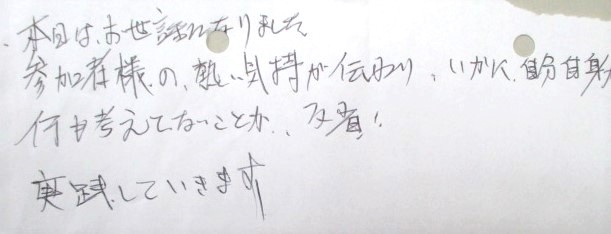 本日は、お世話になりました
参加者様の、熱い気持が伝わり、いかに、自分自身
何も考えてないことか、、反省!
実践していきます